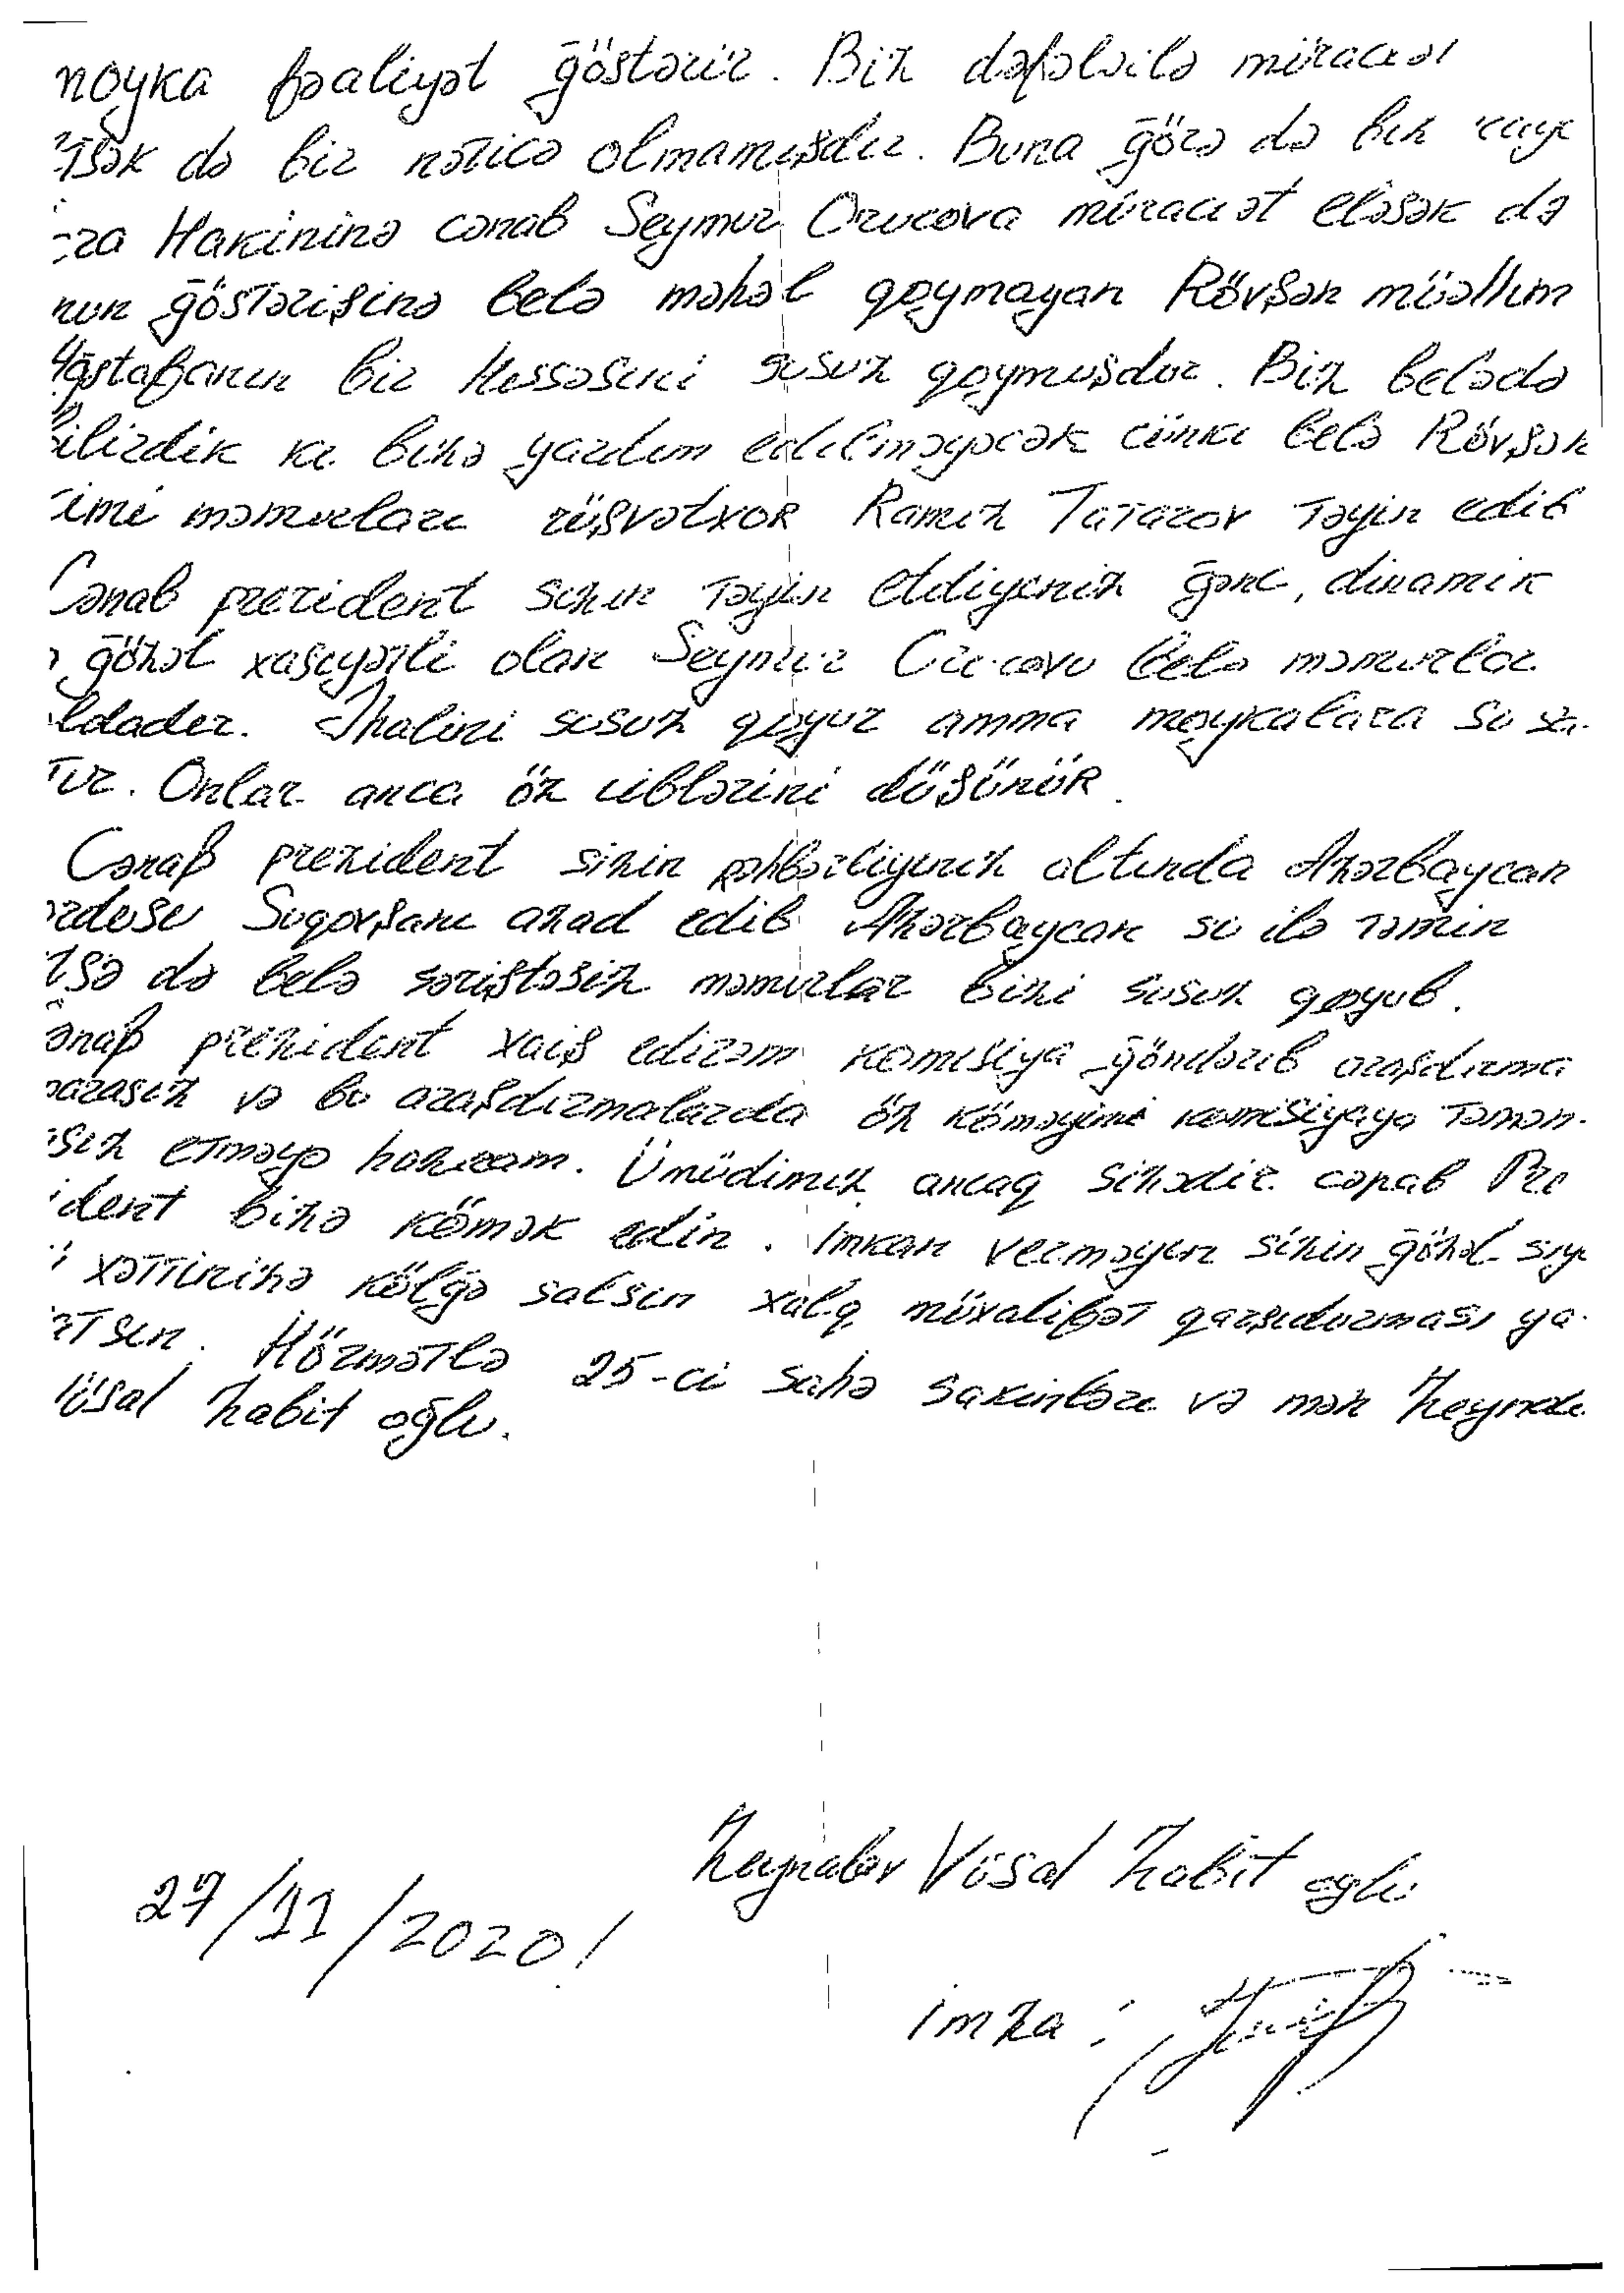 moyka fəaliyət göstərir. Biz dəfələrilə müraciət
də bir nəticə olmamışdır. Buna görə də biz rayo
Hakininə cənab Seymur Orucova müraciət eləsək də
nun göstərişinə belə məhəl qoymayan Rövşən müəllim
Ağstafanın bir hissəsini susuz qoymuşdur. Biz belədə
bilirdik ki bizə yardım edilməyəcək çünki belə Rövşən
kimi məmurları rüşvətxor Ramiz Tatarov təyin edib
Cənab prezident sizin təyin etdiyiniz gənc, dinamik
gözəl xasiyətli olan Seymur Orucovu belə məmurlar
aldadır. Əhalini susuz qoyur amma moykalara su sa-
tır. Onlar anca öz ciblərini düşünür.
Cənab prezident sizin rəhbərliyiniz altında Azərbaycan
ordusu Suqovşanı azad edib Azərbaycan su ilə təmin
etsə də belə səriştəsiz məmurlar bizi susuz qoyub.
Cənab prezident xaiş edirəm komisiya göndərib araşdırma
aparasız və bu araşdırmalarda öz köməyimi komisiyaya təmən-
nasız etməyə hazıram. Ümüdimiz ancaq sizədir cənab Pre
zident bizə kömək edin. İmkan verməyin sizin gözəl siya
xəttinizə kölgə salsın xalq müxalifət qarşıdurması ya-
ratsın. Hörmətlə 25-ci sahə sakinləri və mən Zeynalo
Vüsal Zabit oğlu.
Zeynalov Vüsal Zabit oğlu
27/11/2020!
imza: